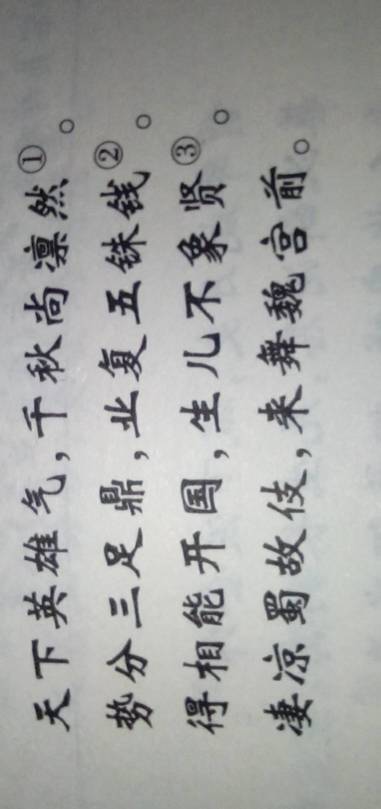 天下英雄气，千秋尚凛然①。
势分三足鼎，业复五铢钱②。
得相能开国，生儿不象贤③。
凄凉蜀故伎，来舞魏宫前。